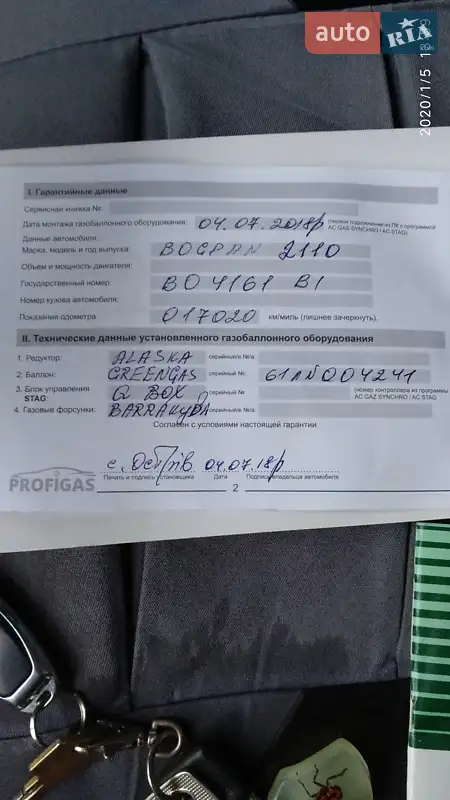 auto RIA .COM
2020/1/5
I. Гарантийные данные
Сервисная книжка №:
Дата монтажа газобаллонного оборудования: 04.07.2018р (первое подключение из ПК с программой AC GAS SYNCHRO / AC STAG)
Данные автомобиля:
Марка, модель и год выпуска: ВОGDАN 2110
Объем и мощность двигателя:
Государственный номер: ВО 4161 ВІ
Номер кузова автомобиля:
Показания одометра 017020 км/миль (лишнее зачеркнуть).
II. Технические данные установленного газобаллонного оборудования
1. Редуктор: ALASKA серийный/е №/а:
2. Баллон: GREENGAS серийный №: 004241
3. Блок управления STAG: Q BOX серийный №: (номер контроллера из программы AC GAZ SYNCHRO / AC STAG
4. Газовые форсунки: BARRAKУDA серийный/е №/а:
Согласен с условиями настоящей гарантии
04.07.18р
PROFIGAS Печать и подпись установщика Дата Подпись владельца автомобиля
2